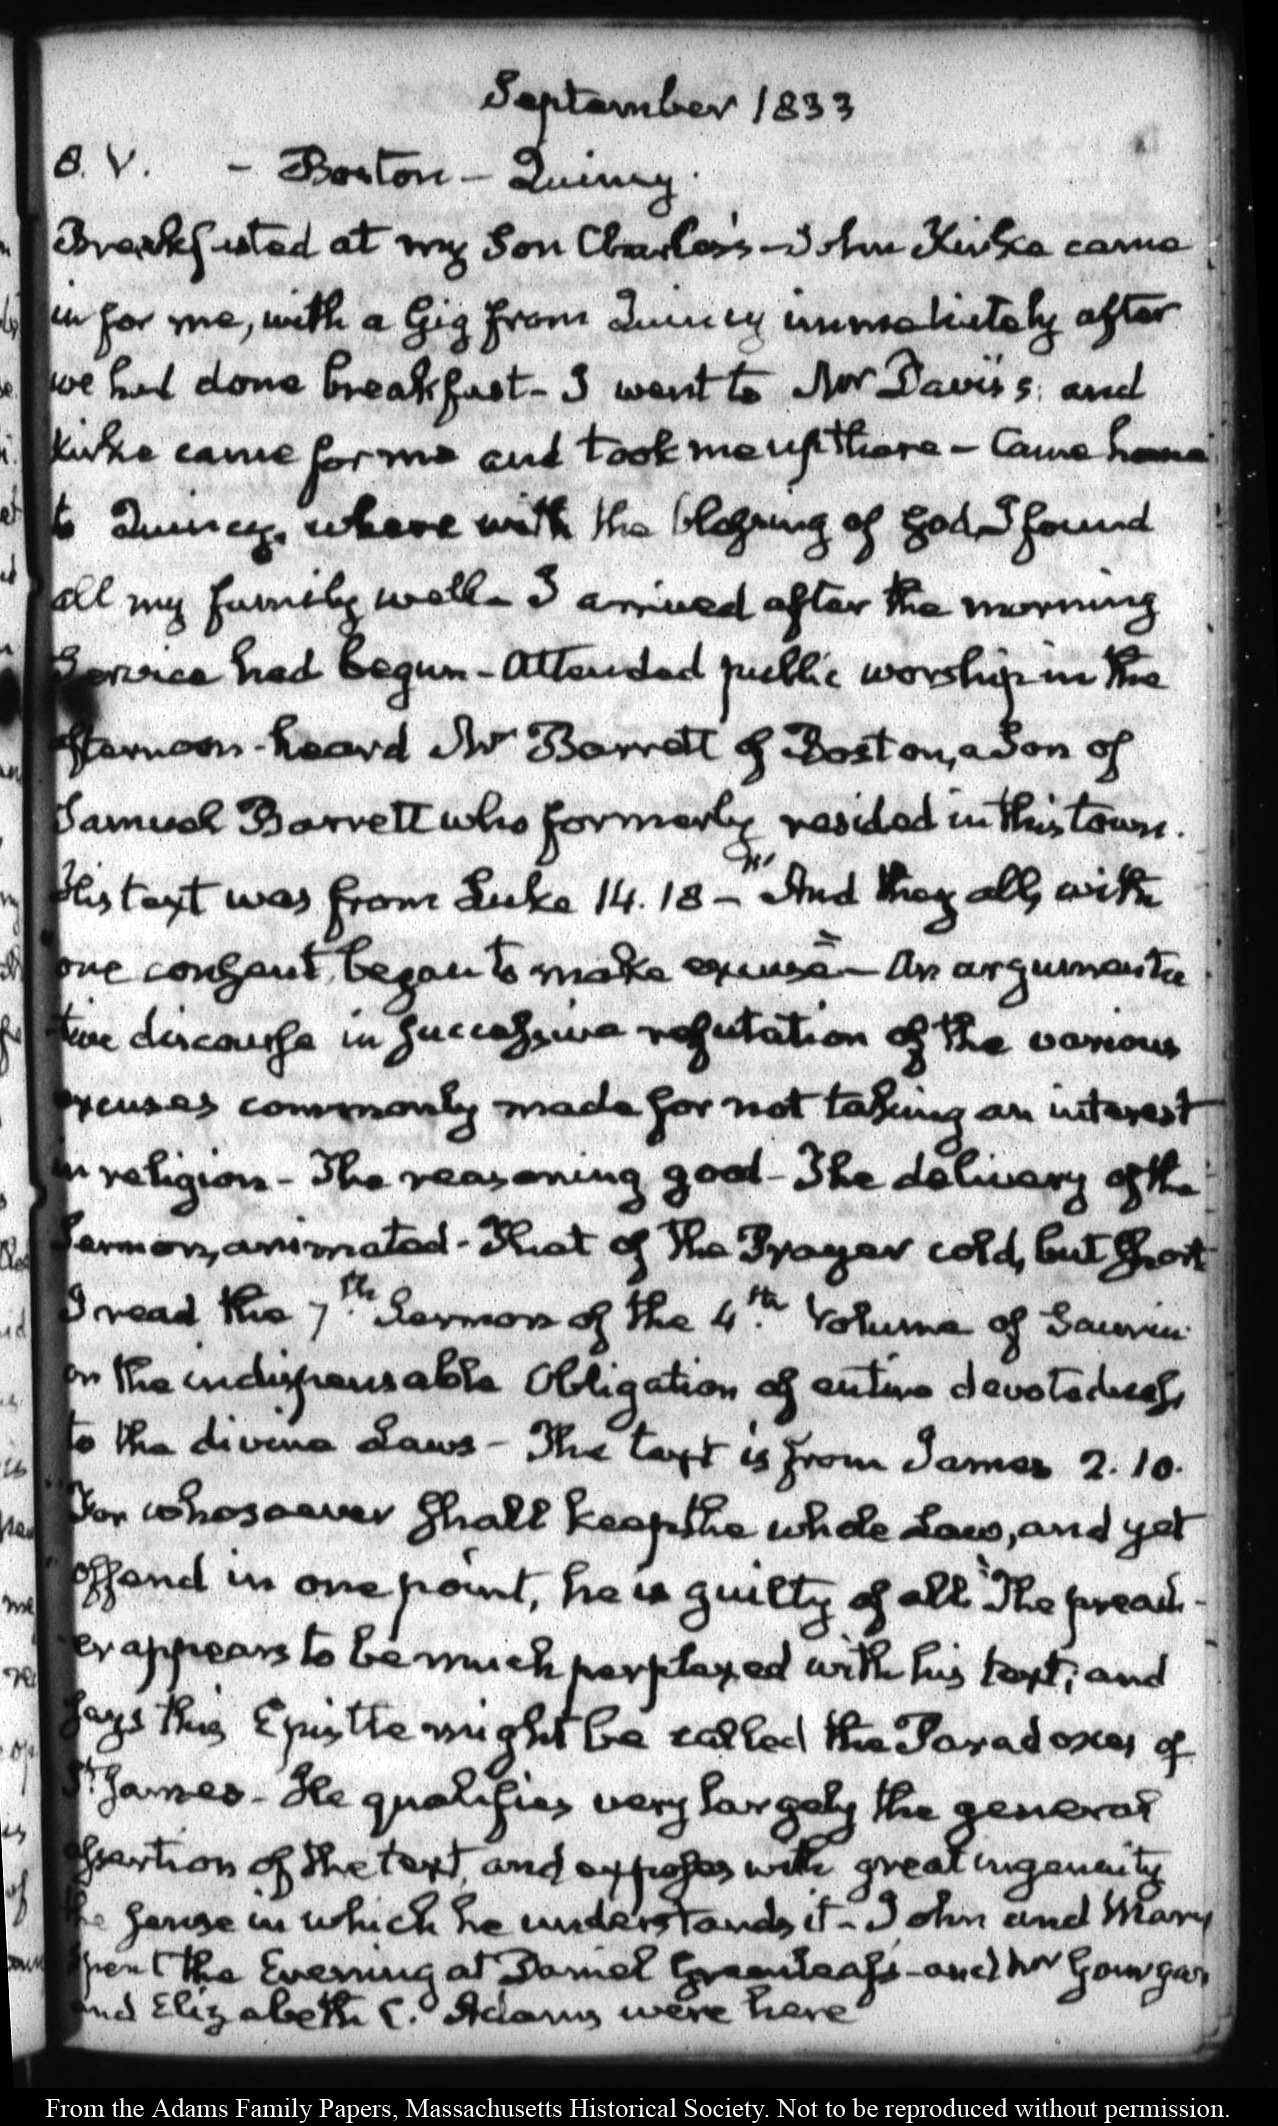 September 1833
8. V. - Boston - Quincy.
Breakfasted at my Son Charles's - John Kirke came
in for me, with a Gig from Quincy immediately after
we had done breakfast - I went to Mr Davis's; and
Kirke came for me and took me up there - Came home
to Quincy, where with the blessing of God, I found
all my family well - I arrived after the morning
Service had begun - Attended public worship in the
afternoon - heard Mr Barrett of Boston, a Son of
Samuel Barrett who formerly resided in this town.
His text was from Luke 14. 18 - "And they all, with
one consent, began to make excuse" - An argumenta
tive discourse in successive refutation of the various
excuses commonly made for not taking an interest
in religion - The reasoning good - The delivery of the
Sermon, animated - That of the Prayer cold, but short
I read the 7th Sermon of the 4th Volume of Saurin
on the indispensable Obligation of entire devotedness
to the divine Laws - The text is from James 2. 10.
For whosoever shall keep the whole Law, and yet
offend in one point, he is guilty of all" The preach-
er appears to be much perplexed with his text; and
says this Epistle might be called the Paradoxes of
St James - He qualifies very largely the general
assertion of the text, and exposes with great ingenuity
the sense in which he understands it - John and Mary
spent the Evening at Daniel Greenleaf's - and Mr Gourgas
and Elizabeth C. Adams were here
From the Adams Family Papers, Massachusetts Historical Society. Not to be reproduced without permission.